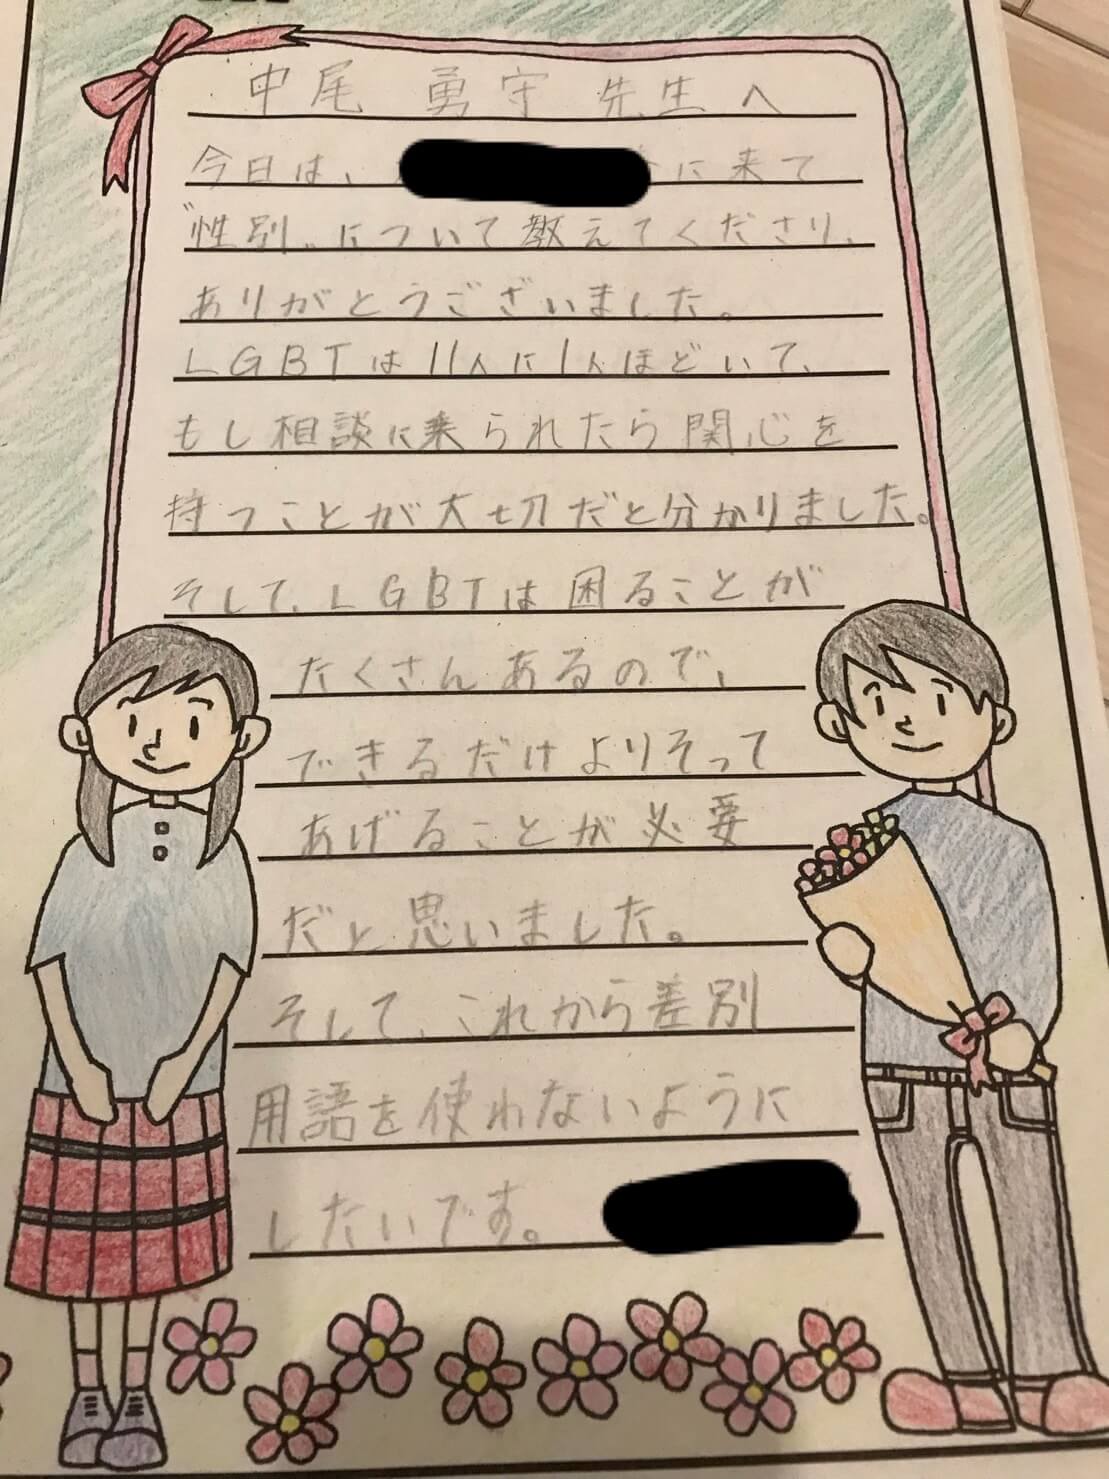 中尾 勇守 先生へ
今日は、に来て
"性別"について教えてくださり、
ありがとうございました。
LGBTは11人に1人ほどいて、
もし相談に乗られたら関心を
持つことが大切だと分かりました。
そして、LGBTは困ることが
たくさんあるので、
できるだけよりそって
あげることが必要
だと思いました。
そして、これから差別
用語を使わないように
したいです。